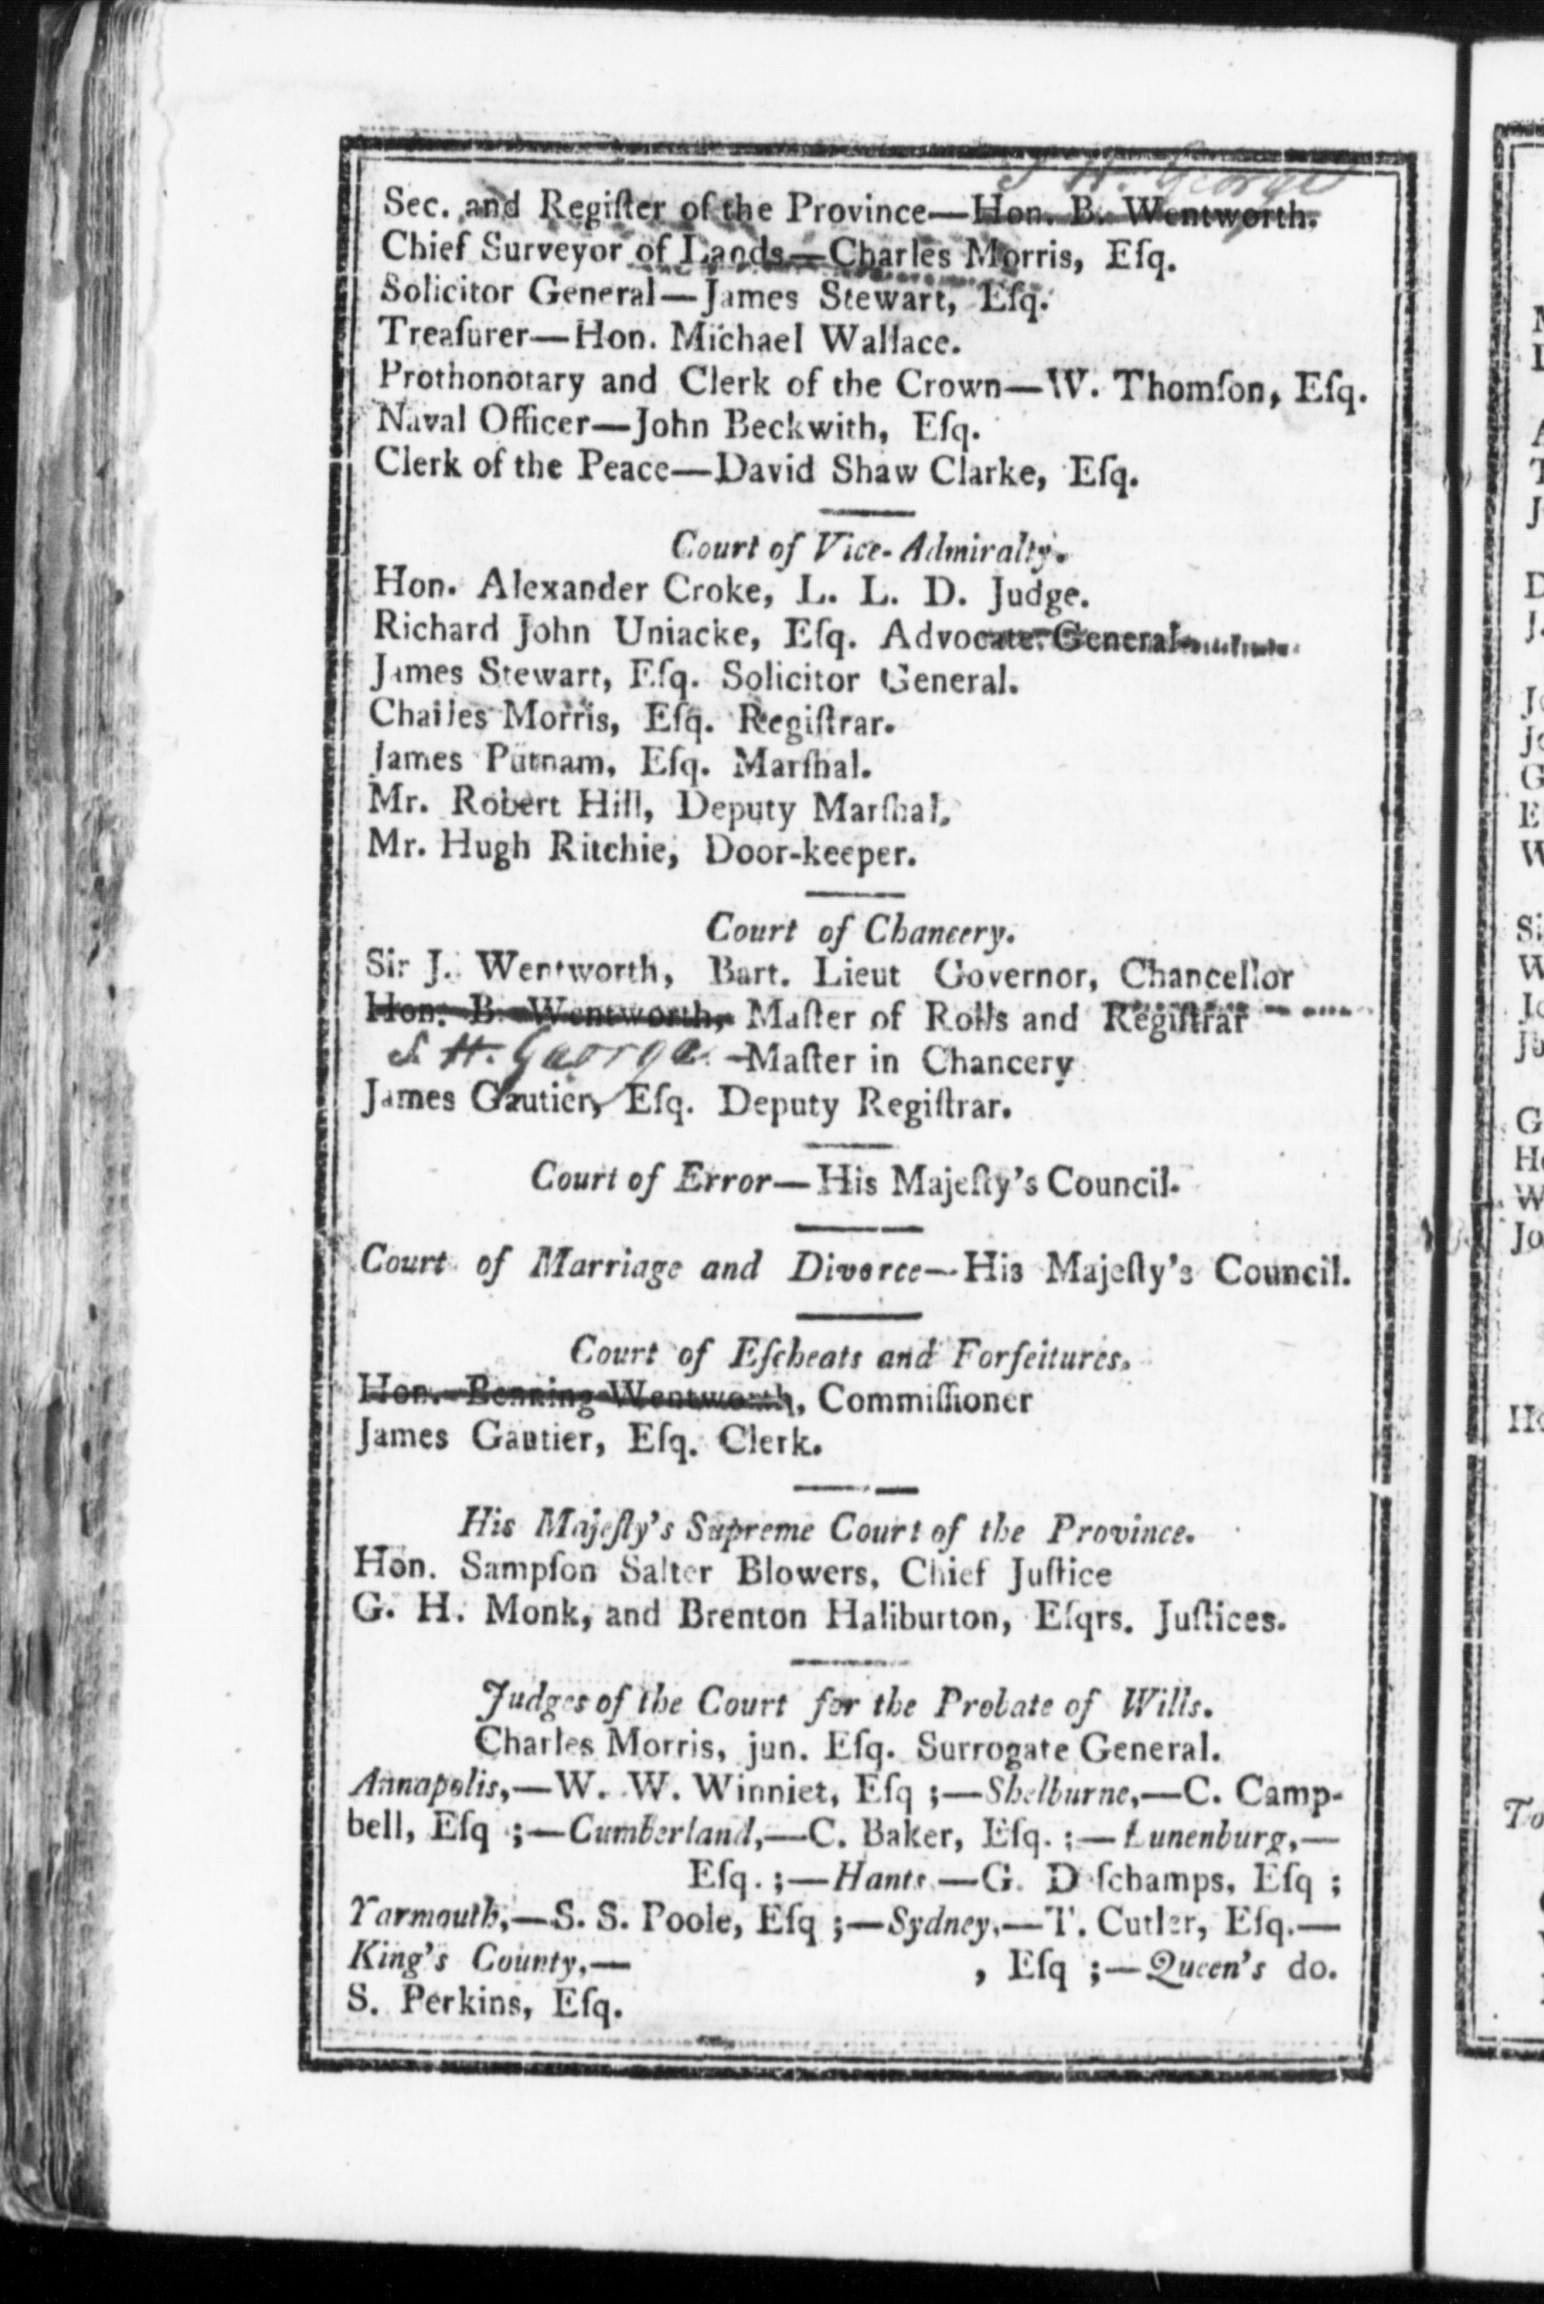 S. H. George
Sec. and Regiſter of the Province—Hon. B. Wentworth.
Chief Surveyor of Lands—Charles Morris, Eſq.
Solicitor General—James Stewart, Eſq.
Treaſurer—Hon. Michael Wallace.
Prothonotary and Clerk of the Crown—W. Thomſon, Eſq.
Naval Officer—John Beckwith, Eſq.
Clerk of the Peace—David Shaw Clarke, Eſq.
Court of Vice-Admiralty.
Hon. Alexander Croke, L. L. D. Judge.
Richard John Uniacke, Eſq. Advocate General
James Stewart, Eſq. Solicitor General.
Charles Morris, Eſq. Regiſtrar.
James Putnam, Eſq. Marſhal.
Mr. Robert Hill, Deputy Marſhal.
Mr. Hugh Ritchie, Door-keeper.
Court of Chancery.
Sir J. Wentworth, Bart. Lieut Governor, Chancellor
Hon. B. Wentworth, Maſter of Rolls and Regiſtrar
S. H. George —Maſter in Chancery
James Gautier, Eſq. Deputy Regiſtrar.
Court of Error—His Majeſty's Council.
Court of Marriage and Divorce—His Majeſty's Council.
Court of Eſcheats and Forfeitures.
Hon. Benning Wentworth, Commiſſioner
James Gautier, Eſq. Clerk.
His Majeſty's Supreme Court of the Province.
Hon. Sampſon Salter Blowers, Chief Juſtice
G. H. Monk, and Brenton Haliburton, Eſqrs. Juſtices.
Judges of the Court for the Probate of Wills.
Charles Morris, jun. Eſq. Surrogate General.
Annapolis,—W. W. Winniet, Eſq ;—Shelburne,—C. Camp-
bell, Eſq ;—Cumberland,—C. Baker, Eſq. ;—Lunenburg,—
Eſq. ;—Hants,—G. D ſchamps, Eſq ;
Yarmouth,—S. S. Poole, Eſq ;—Sydney,—T. Cutler, Eſq.—
King's County,— , Eſq ;—Queen's do.
S. Perkins, Eſq.